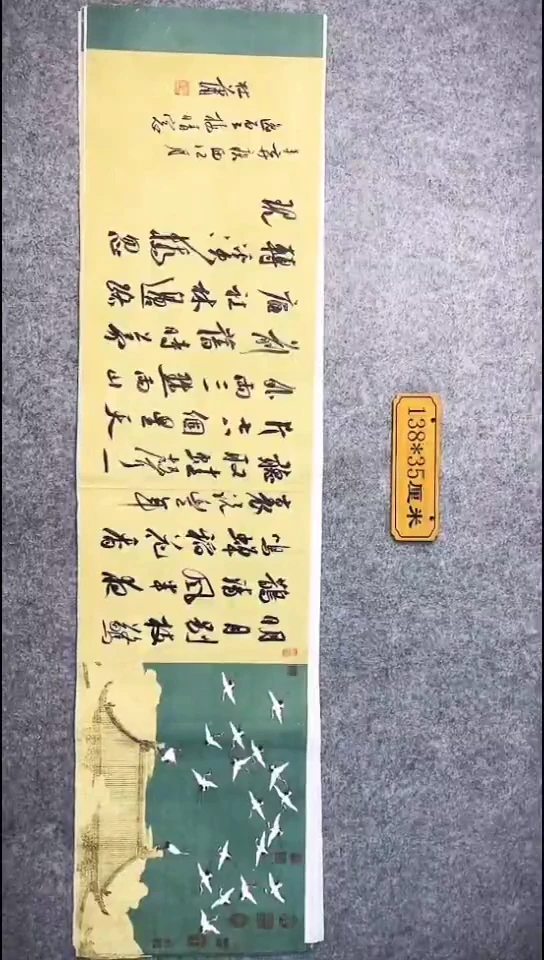 明月別枝驚
鵲清風半夜
鳴蟬稻花香
裏說豐年
聽取蛙聲一
片七八個星天
外兩三點雨山
前舊時茅
店社林邊路
轉溪橋忽
見
辛棄疾西江月
138*35厘米